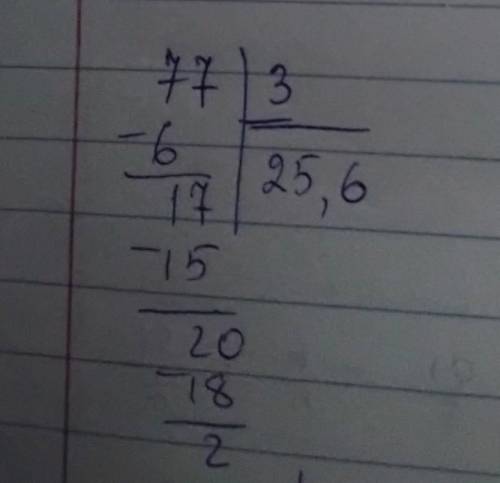 77 3
-6 25,6
17
-15
20
-18
2